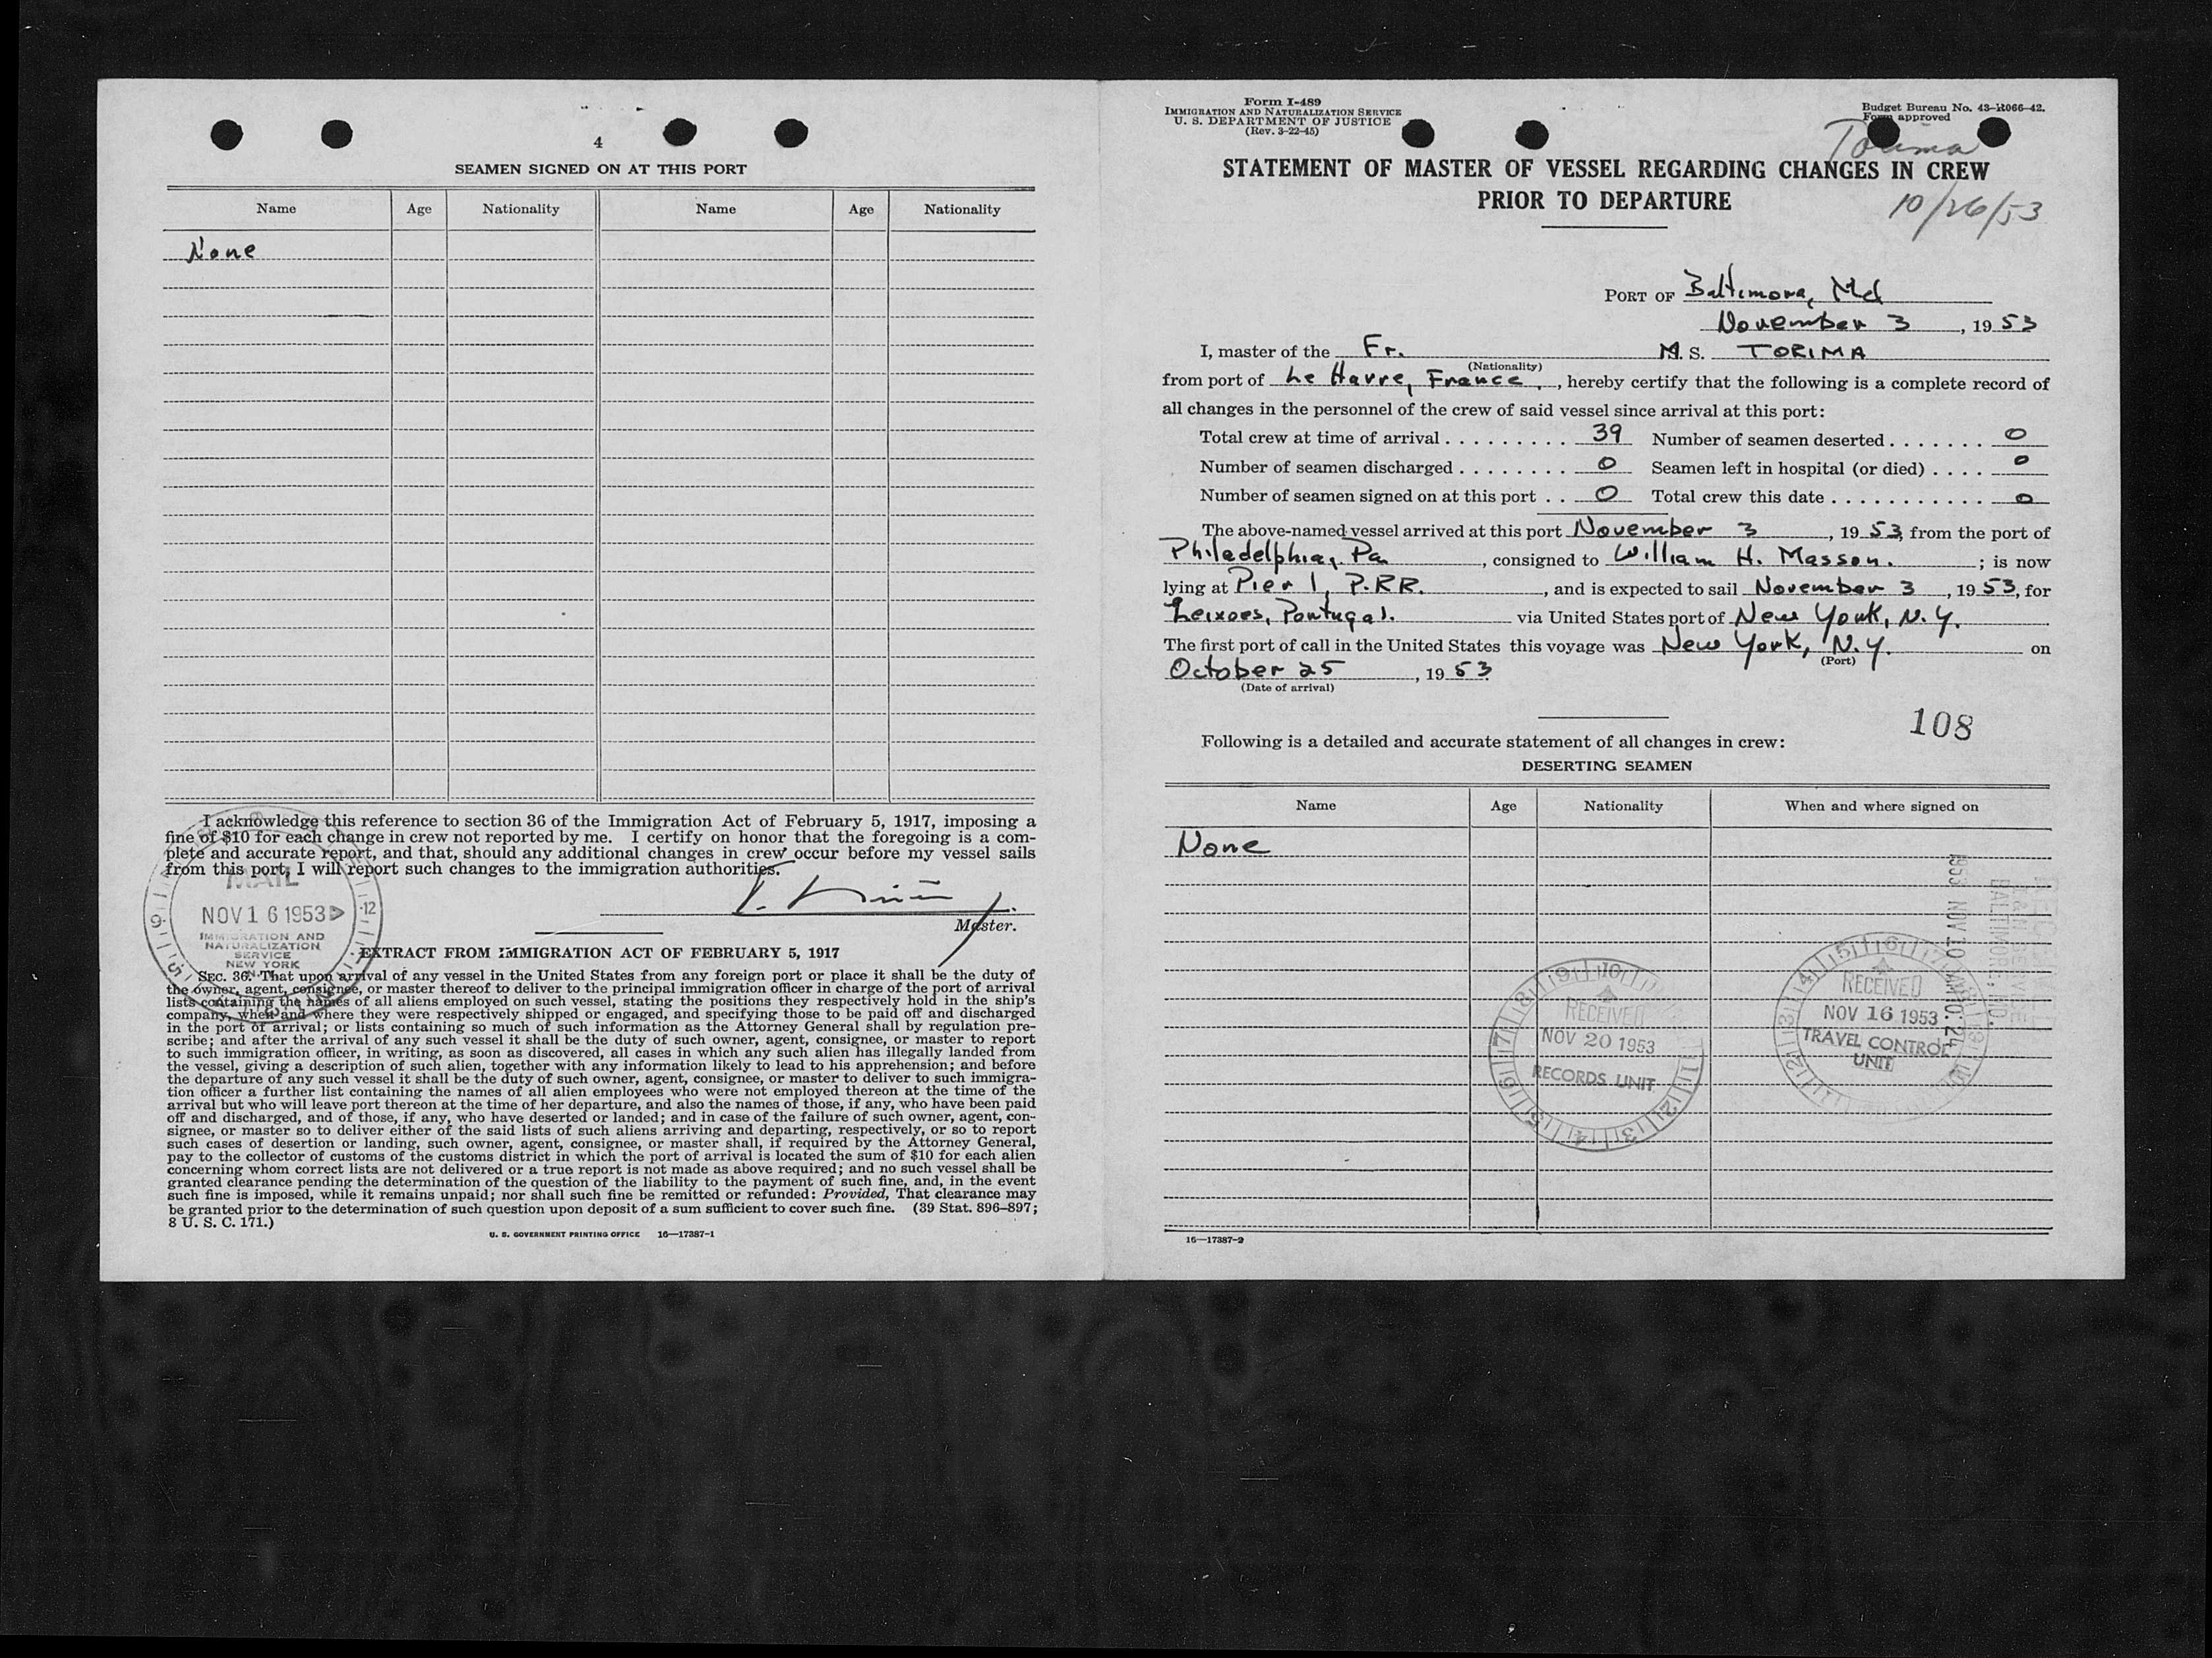 4
SEAMEN SIGNED ON AT THIS PORT
Name Age Nationality Name Age Nationality
None
I acknowledge this reference to section 36 of the Immigration Act of February 5, 1917, imposing a
fine of $10 for each change in crew not reported by me. I certify on honor that the foregoing is a com-
plete and accurate report, and that, should any additional changes in crew occur before my vessel sails
from this port, I will report such changes to the immigration authorities.
MAIL
NOV 16 1953
IMMIGRATION AND
NATURALIZATION
SERVICE
NEW YORK
Master.
EXTRACT FROM IMMIGRATION ACT OF FEBRUARY 5, 1917
SEC. 36. That upon arrival of any vessel in the United States from any foreign port or place it shall be the duty of
the owner, agent, consignee, or master thereof to deliver to the principal immigration officer in charge of the port of arrival
lists containing the names of all aliens employed on such vessel, stating the positions they respectively hold in the ship's
company, when and where they were respectively shipped or engaged, and specifying those to be paid off and discharged
in the port of arrival; or lists containing so much of such information as the Attorney General shall by regulation pre-
scribe; and after the arrival of any such vessel it shall be the duty of such owner, agent, consignee, or master to report
to such immigration officer, in writing, as soon as discovered, all cases in which any such alien has illegally landed from
the vessel, giving a description of such alien, together with any information likely to lead to his apprehension; and before
the departure of any such vessel it shall be the duty of such owner, agent, consignee, or master to deliver to such immigra-
tion officer a further list containing the names of all alien employees who were not employed thereon at the time of the
arrival but who will leave port thereon at the time of her departure, and also the names of those, if any, who have been paid
off and discharged, and of those, if any, who have deserted or landed; and in case of the failure of such owner, agent, con-
signee, or master so to deliver either of the said lists of such aliens arriving and departing, respectively, or so to report
such cases of desertion or landing, such owner, agent, consignee, or master shall, if required by the Attorney General,
pay to the collector of customs of the customs district in which the port of arrival is located the sum of $10 for each alien
concerning whom correct lists are not delivered or a true report is not made as above required; and no such vessel shall be
granted clearance pending the determination of the question of the liability to the payment of such fine, and, in the event
such fine is imposed, while it remains unpaid; nor shall such fine be remitted or refunded: Provided, That clearance may
be granted prior to the determination of such question upon deposit of a sum sufficient to cover such fine. (39 Stat. 896–897;
8 U. S. C. 171.)
U. S. GOVERNMENT PRINTING OFFICE 16—17387-1
Form I-489
IMMIGRATION AND NATURALIZATION SERVICE
U. S. DEPARTMENT OF JUSTICE
(Rev. 3-22-45)
Budget Bureau No. 43-R066-42.
Form approved
Torima
STATEMENT OF MASTER OF VESSEL REGARDING CHANGES IN CREW
PRIOR TO DEPARTURE
10/26/53
PORT OF Baltimore, Md
November 3, 1953
I, master of the Fr. M. S. TORIMA
(Nationality)
from port of Le Havre, France, hereby certify that the following is a complete record of
all changes in the personnel of the crew of said vessel since arrival at this port:
Total crew at time of arrival 39 Number of seamen deserted 0
Number of seamen discharged 0 Seamen left in hospital (or died) 0
Number of seamen signed on at this port 0 Total crew this date 0
The above-named vessel arrived at this port November 3, 1953, from the port of
Philadelphia, Pa, consigned to William H. Masson.; is now
lying at Pier 1, P.RR., and is expected to sail November 3, 1953, for
Leixoes, Portugal. via United States port of New York, N.Y.
The first port of call in the United States this voyage was New York, N.Y. on
(Port)
October 25, 1953
(Date of arrival)
108
Following is a detailed and accurate statement of all changes in crew:
DESERTING SEAMEN
Name Age Nationality When and where signed on
None
RECEIVED
NOV 20 1953
RECORDS UNIT
RECEIVED
NOV 16 1953
TRAVEL CONTROL
UNIT
1953 NOV 10
BALTIMORE, MD.
16—17387-2